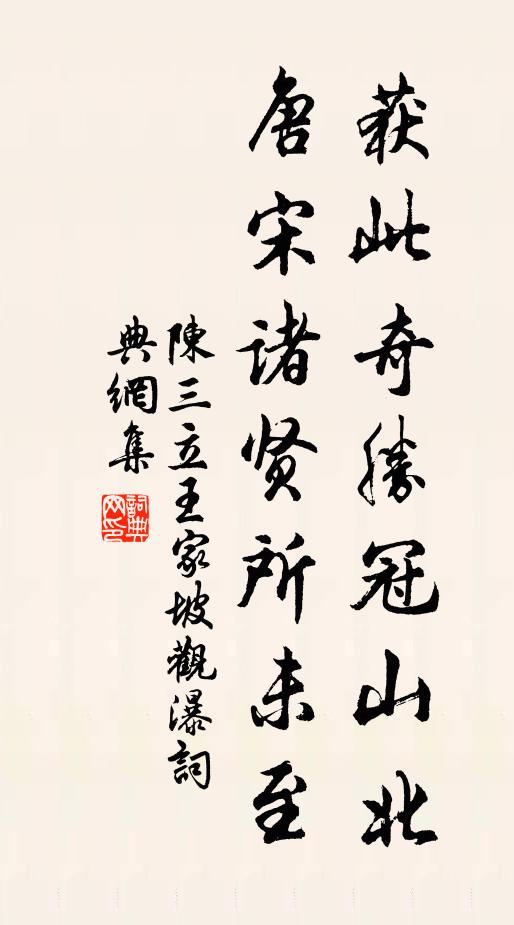 获此奇勝冠山北
唐宋诸贤所未至
陳三立王家坡觀瀑詞
典網集
詞典网印